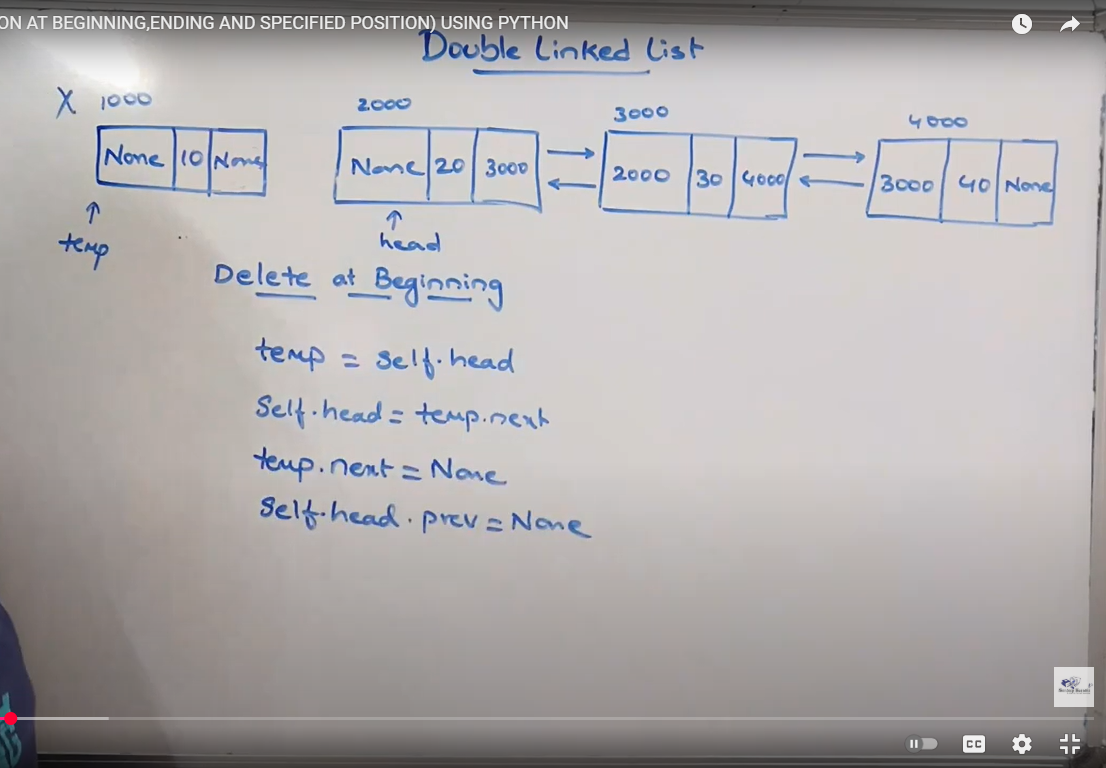 ON AT BEGINNING,ENDING AND SPECIFIED POSITION) USING PYTHON
Double Linked List
X 1000 2000 3000 4000
None 10 None None 20 3000 2000 30 4000 3000 40 None
temp head
Delete at Beginning
temp = self.head
Self.head = temp.next
temp.next = None
Self.head.prev = None
CC